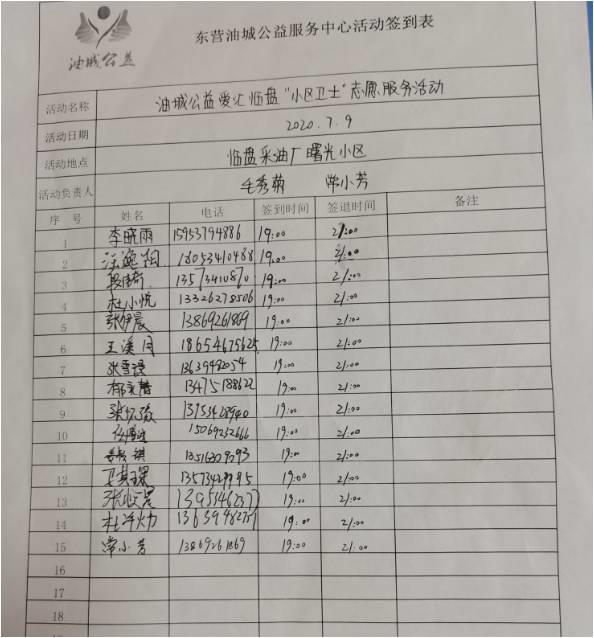 油城公益
东营油城公益服务中心活动签到表
活动名称 油城公益爱汇临盘"小区卫士"志愿服务活动
活动日期 2020.7.9
活动地点 临盘采油厂曙光小区
活动负责人 毛秀菊 常小芳
序 号 姓名 电话 签到时间 签退时间 备注
1 李晓雨 15953794886 19:00 21:00
2 18053410488 19:00 21:00
3 13573410870 19:00 21:00
4 杜小悦 13326278506 19:00 21:00
5 张伊晨 13869261869 19:00 21:00
6 王溪月 18654675625 19:00 21:00
7 13639482054 19:00 21:00
8 13475188622 19:00 21:00
9 19:00 21:00
10 15069232666 19:00 21:00
11 19:00 21:00
12 19:00 21:00
13 19:00 21:00
14 19:00 21:00
15 常小芳 13869261869 19:00 21:00
16
17
18